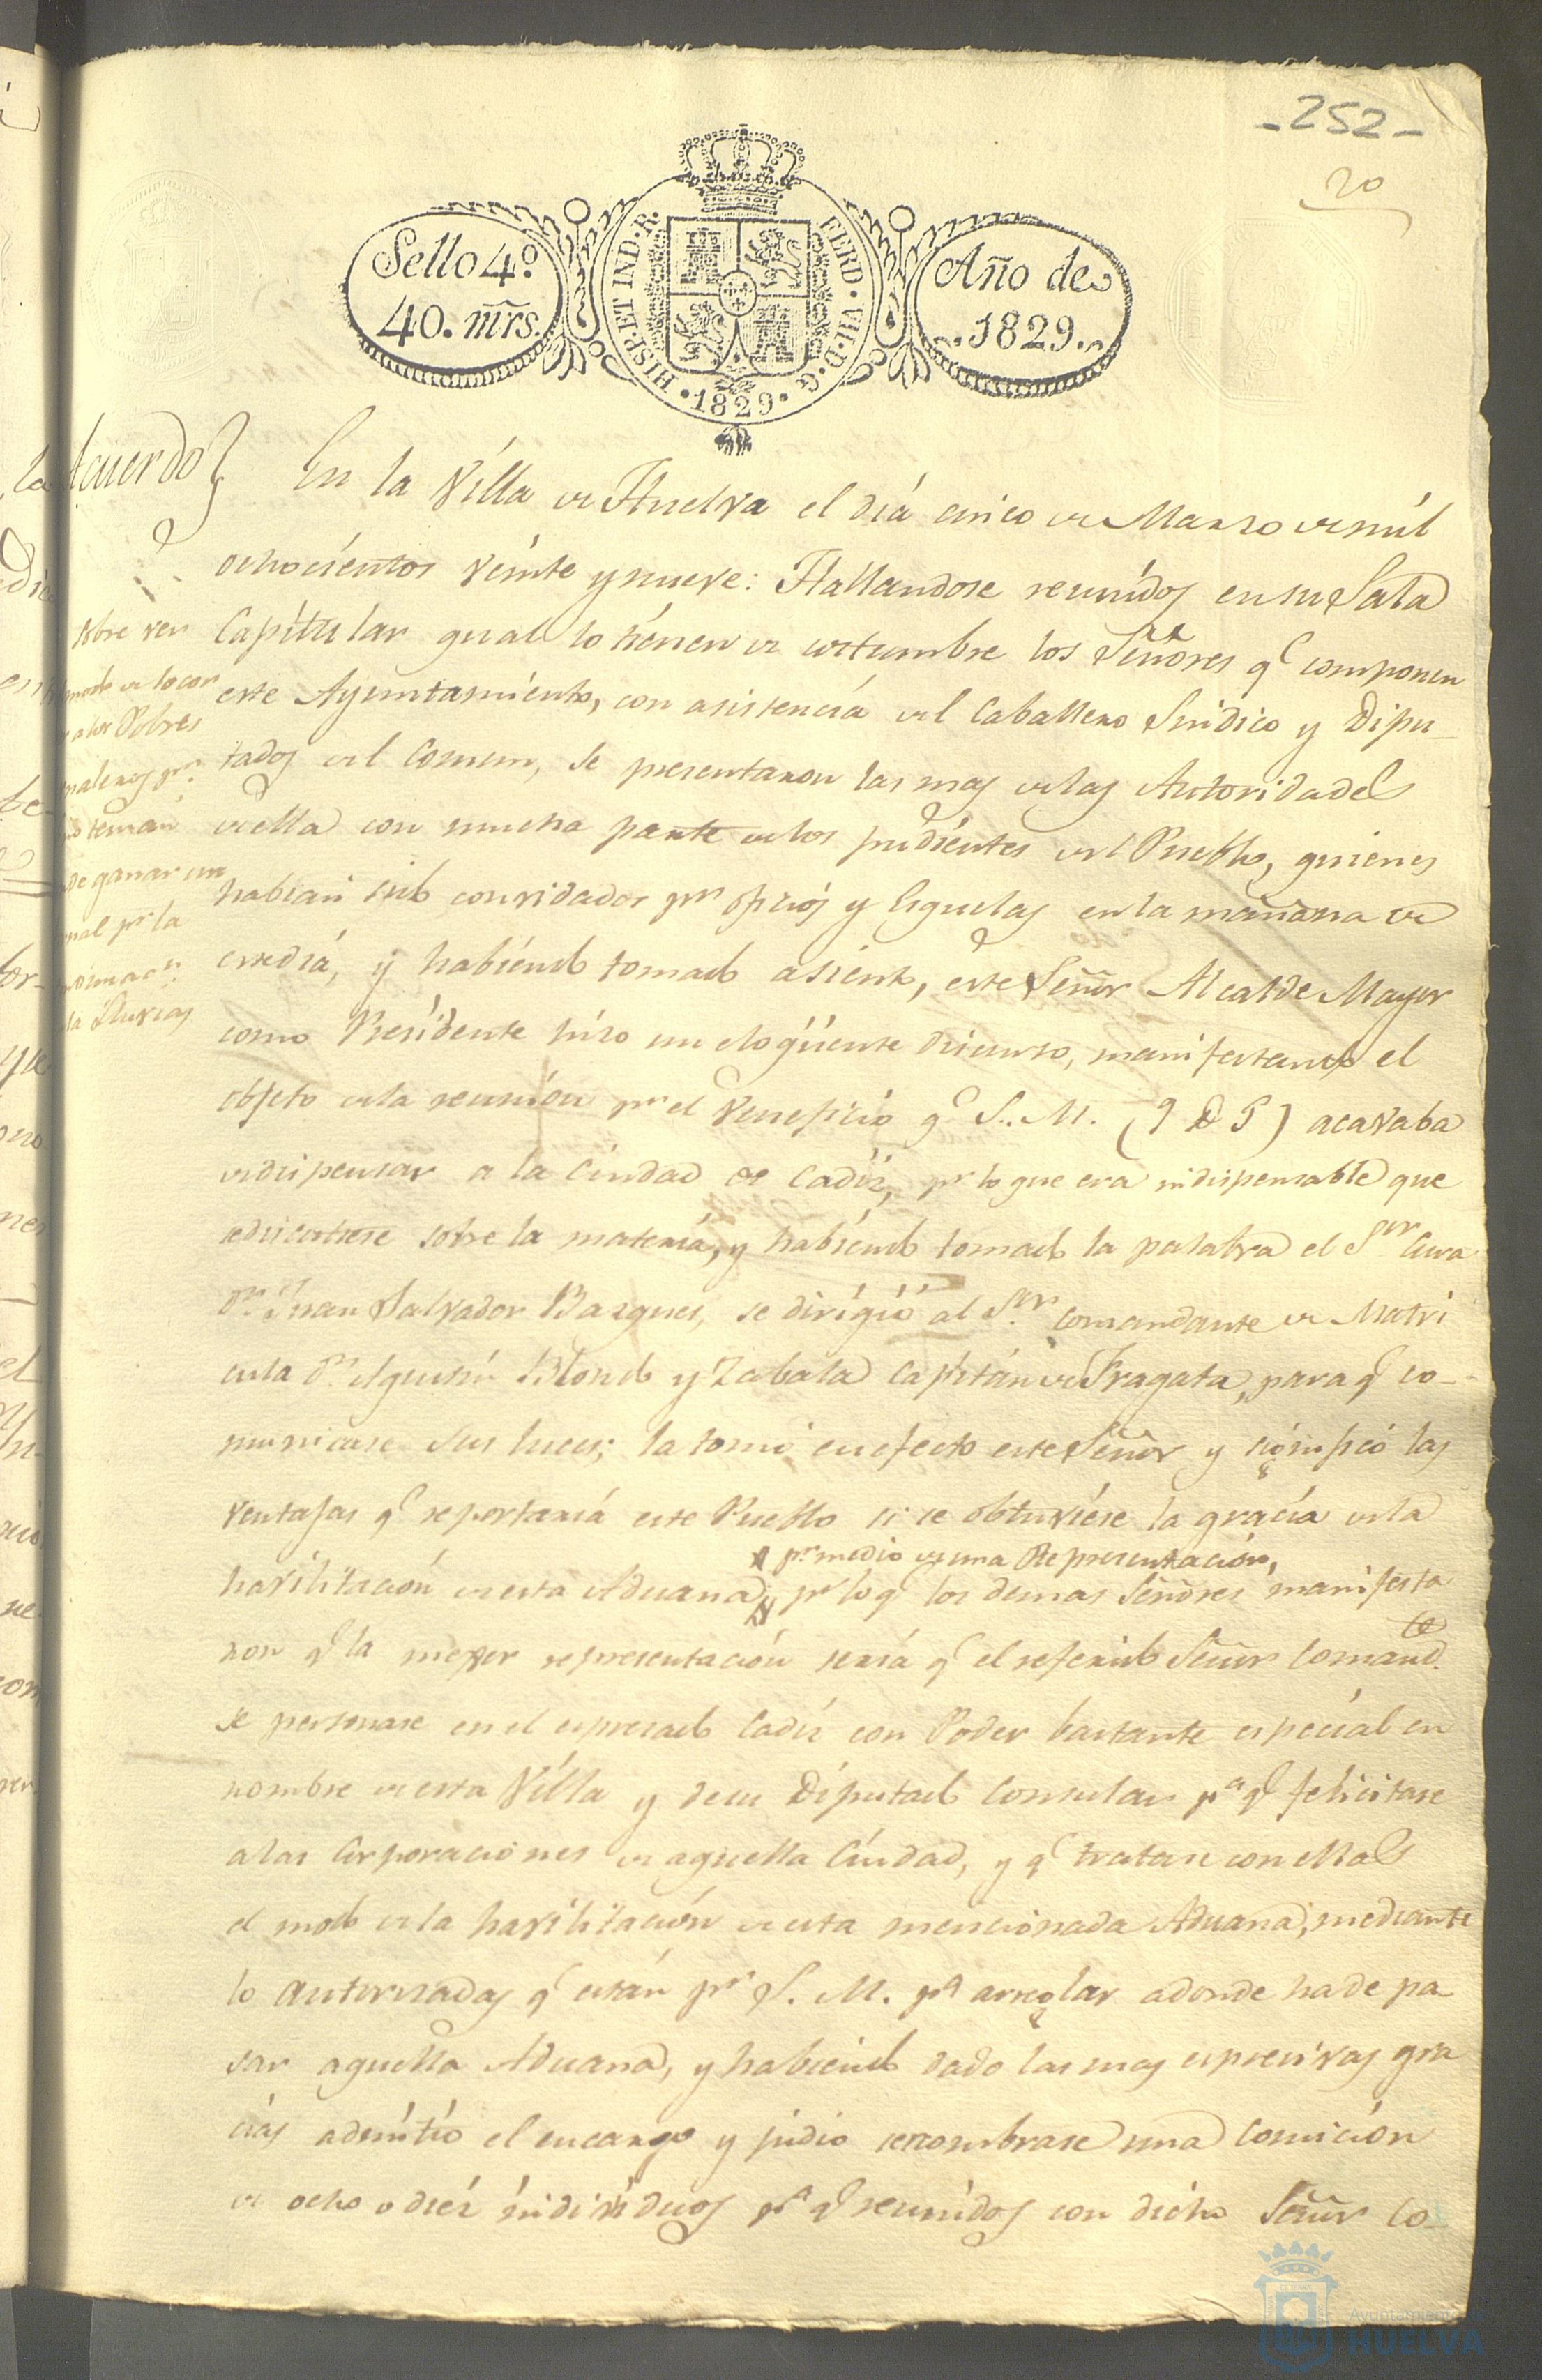 -252-
20
Sello 4º
40. mrs.
HISP. ET IND. R.
FERD. VII. D. G.
1829
Año de
1829.
Acuerdo
En la Villa de Huelva el día cinco de Marzo de mil
ochocientos veinte y nueve: Hallandose reunidos en su Sala
Capitular qual lo tienen de costumbre los Señores q.e componen
este Ayuntamiento, con asistencia del Caballero Sindico y Dipu-
tados del Comun, se presentaron las mas de las Autoridades
de ella con mucha parte de los pudientes del Pueblo, quienes
habian sido convidados p.r oficios y Esquelas en la mañana de
este dia, y habiendo tomado asiento, este Señor Alcalde Mayor
como Presidente hizo un eloqüente discurso, manifestando el
objeto de la reunion p.r el veneficio q.e S. M. (Q D G) acavaba
de dispensar a la Ciudad de Cadiz, p.r lo que era indispensable que
se discutiese sobre la materia, y habiendo tomado la palabra el S.or Cura
D.n Juan Salvador Bazques, se dirigió al S.or Comandante de Matri
cula D.n Agustin Blondo y Zabala Capitán de Fragata, para q.e co-
municase sus luces; la tomó en efecto este Señor y significó las
ventajas q.e reportaria este Pueblo si se obtuviese la gracia de la
p.r medio de una Representación,
havilitación de esta Aduana, y p.r lo q.e los demas Señores manifesta
ron q.e la mejor representación seria q.e el referido Señor Comand.te
se personase en el espresado Cadiz con Poder bastante especial en
nombre de esta Villa y de su Diputado Consular p.a q.e felicitase
a las Corporaciones de aquella Ciudad, y q.e tratase con ellas
el modo de la havilitación de esta mencionada Aduana, mediante
lo autorizadas q.e están p.r S. M. p.a arreglar adonde ha de pa-
sar aquella Aduana, y habiendo dado las mas espresivas gra
cias admitió el encargo y pidió se nombrase una Comición
de ocho o diez individuos p.a q.e reunidos con dicho Señor Co-
sobre ver
modo de socor
a los Pobres
p.r
tenian
de ganar un
p.r la
la Lluvias
Ayuntamiento de
HUELVA